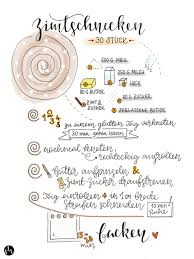 zimtschnecken
30 STÜCK
500 G MEHL
250 G MILCH
1 HEFE
80 G BUTTER
80 G ZUCKER
ZIMT & ZUCKER
1 2 3 4 5 zu einem glatten Teig verkneten
30 min. gehen lassen
nochmal kneten,
rechteckig ausrollen
Butter aufpinseln &
Zimt Zucker draufstreuen
Teig einrollen + in 1cm breite
Streifen schneiden
10 min
Ruhe
backen